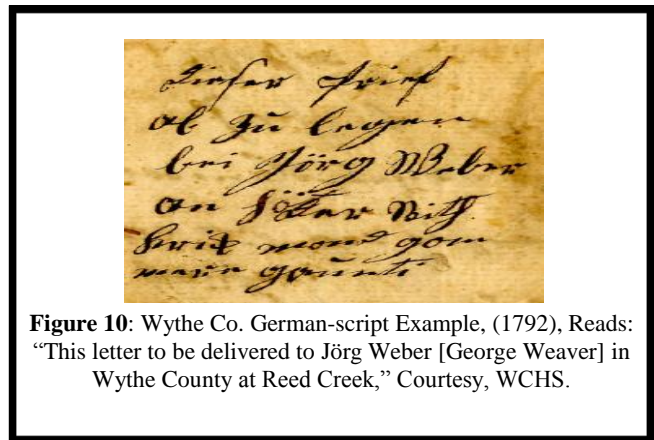 Dieser Brief
ab zu legen
bei Jörg Weber
an
krik mond gom
mere gaunti
Figure 10: Wythe Co. German-script Example, (1792), Reads:
“This letter to be delivered to Jörg Weber [George Weaver] in
Wythe County at Reed Creek,” Courtesy, WCHS.